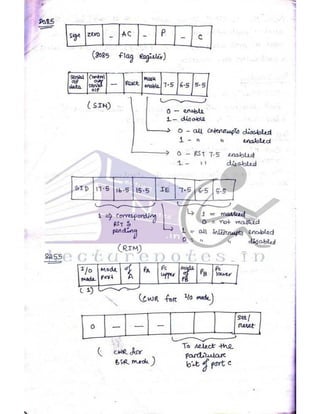 8085
Sign zero – AC – P – C
(8085 flag Register)
Serial O/P data Control over serial O/P – Reset Mask enable 7.5 6.5 5.5
(SIM)
0 – enable
1 – disable
0 – all interrupts disabled
1 – " " enabled
0 – RST 7.5 enabled
1 – " disabled
SID I7.5 I6.5 I5.5 IE 7.5 6.5 5.5
1 if corresponding RST is pending
1 = masked
0 = not masked
1 = all interrupts enabled
0 " " disabled
(RIM)
lecturenotes.in
8255
I/O mode Mode Port of A PA Pc upper mode of PB PB Pc lower
(1)
(CWR for I/O mode)
0 – – – Set/Reset
(CWR for BSR mode)
To select the particular bit of port c